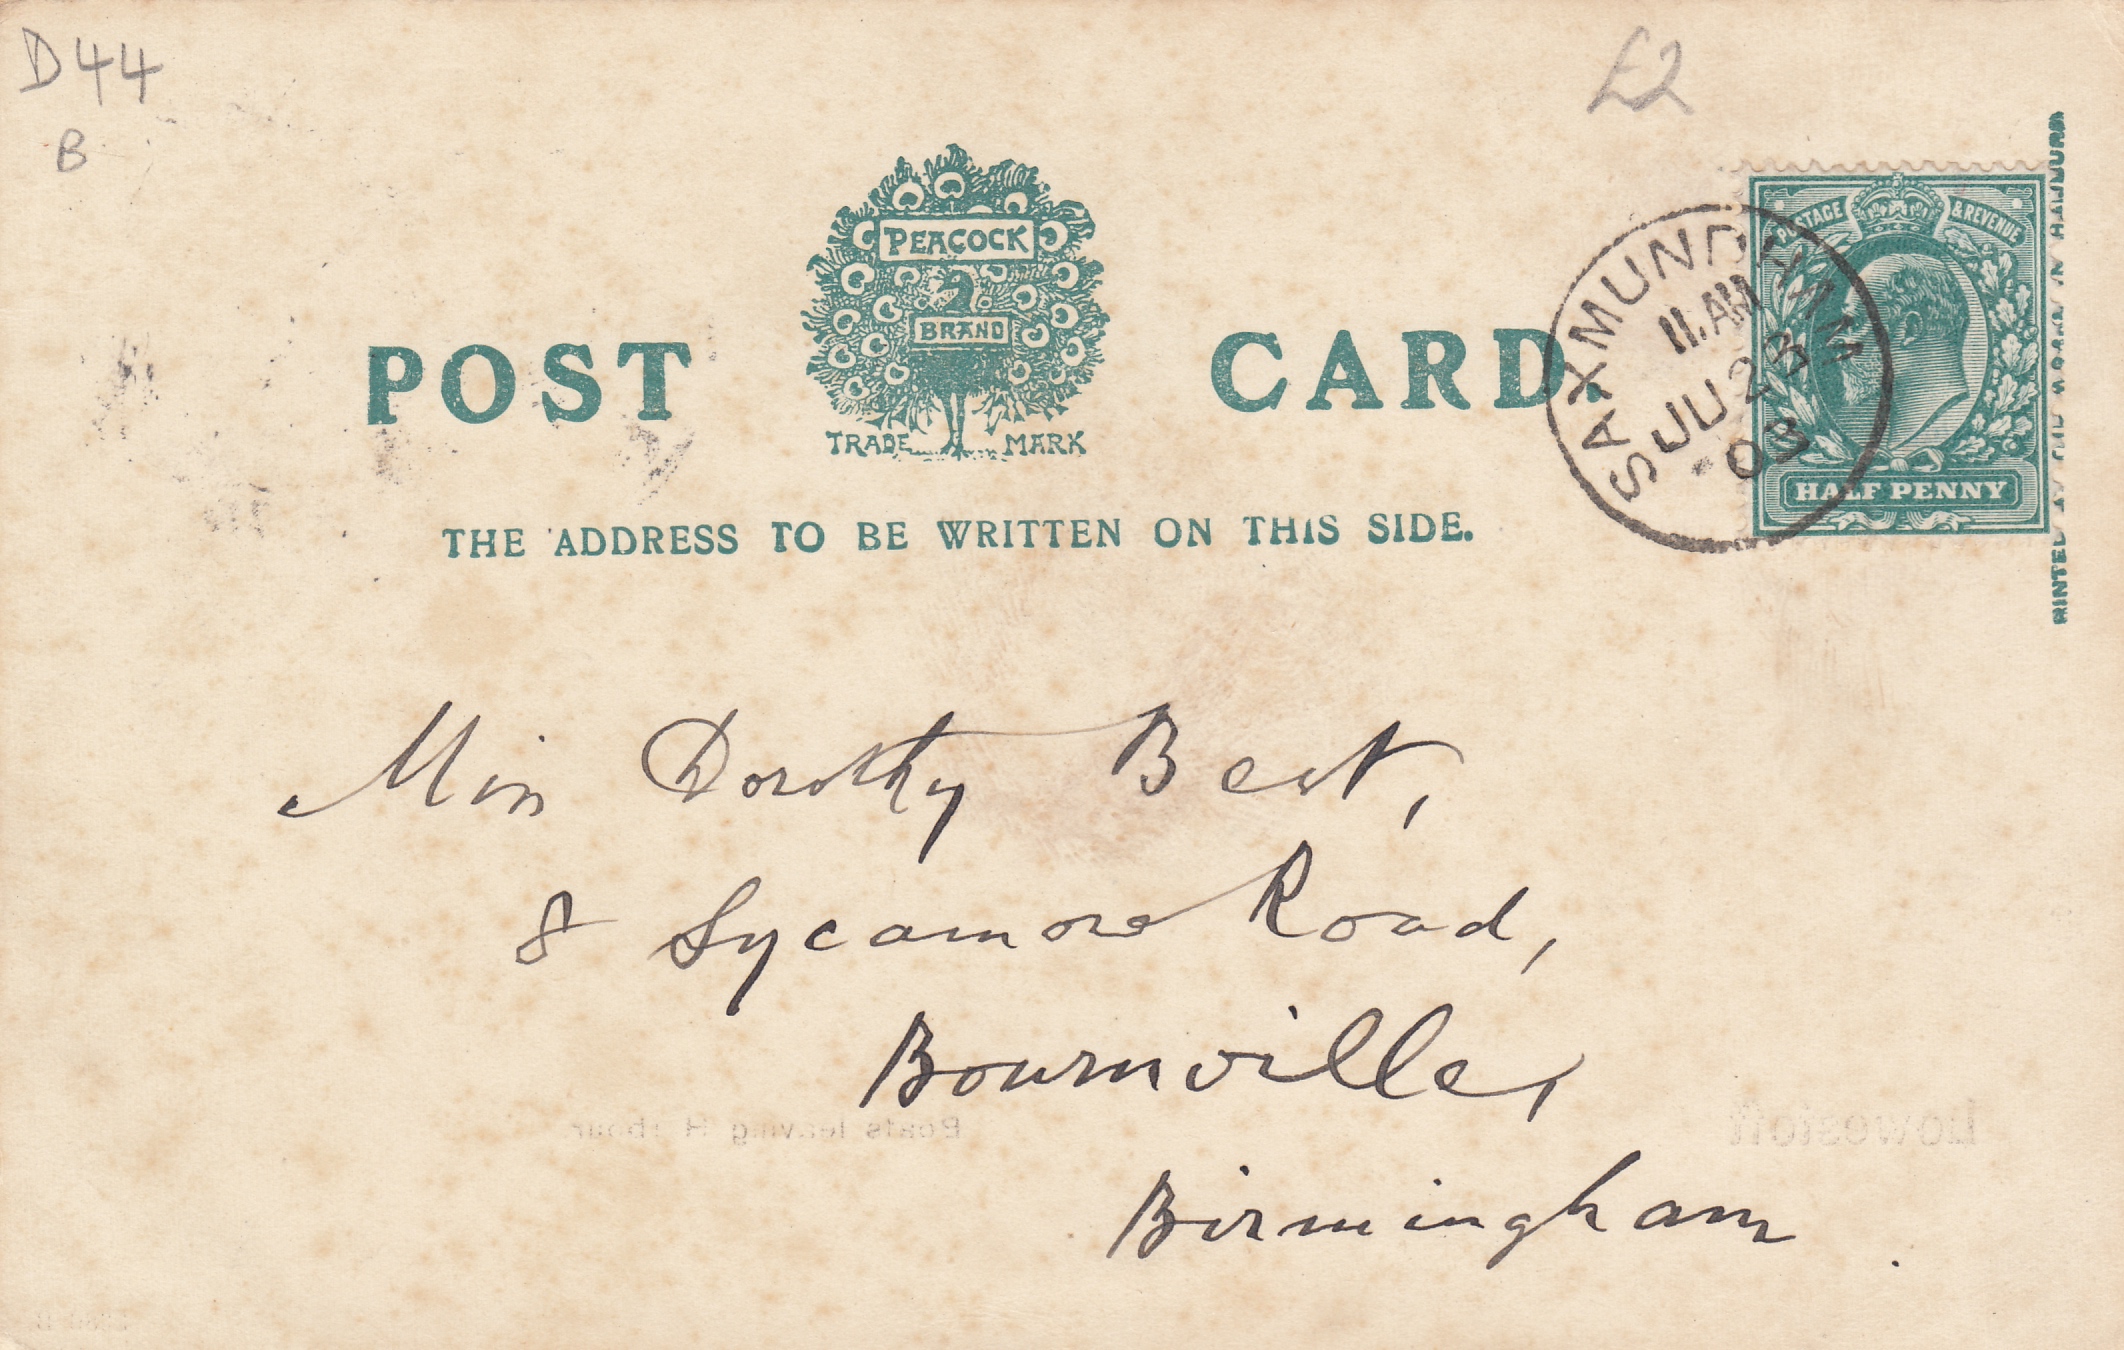 D44
B
£2
PEACOCK
BRAND
TRADE MARK
POST CARD.
THE ADDRESS TO BE WRITTEN ON THIS SIDE.
POSTAGE & REVENUE
HALF PENNY
SAXMUNDHAM
11. AM
JU 23
03
PRINTED
Miss Dorothy Best,
8 Sycamore Road,
Bournville,
Boats leaving Harbour.
Lowestoft
Birmingham